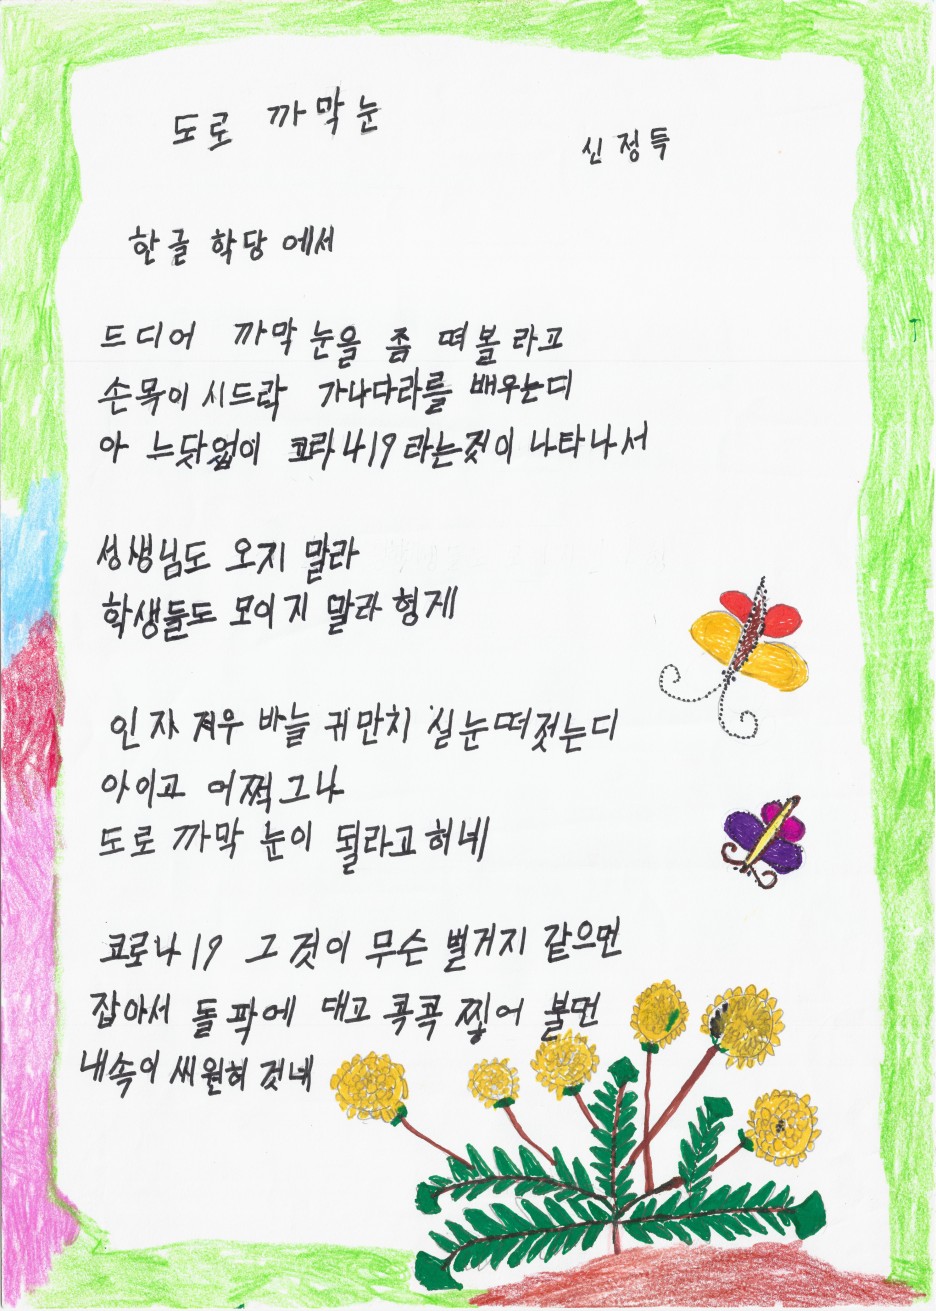 도로 까막눈
신정득
한글 학당에서
드디어 까막눈을 좀 떠볼라고
손목이 시드락 가나다라를 배우는디
아 느닷없이 코라나19라는것이 나타나서
성생님도 오지 말라
학생들도 모이지 말라 헝게
인자 겨우 바늘 귀만치 실눈떠젓는디
아이고 어쩍그나
도로 까막 눈이 될라고 허네
코로나19 그것이 무슨 벌거지 같으먼
잡아서 돌팍에 대고 콕콕 찧어 불먼
내속이 씨원허것네